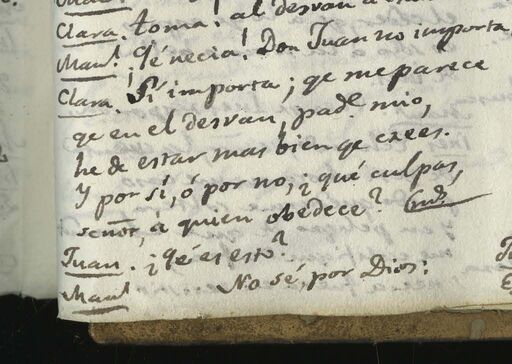 Clara. toma! al desvan a
Man.l ¡Qé necia! Don Juan no importa
Clara. Sí importa; qe me parece
qe en el desvan, pad.e mio,
he de estar mas bien qe crees.
Y por sí, ó por no, ¿qué culpas,
señor, á quien obedece?
Juan. ¿Qé es esto?
Man.l No sé, por Dios: